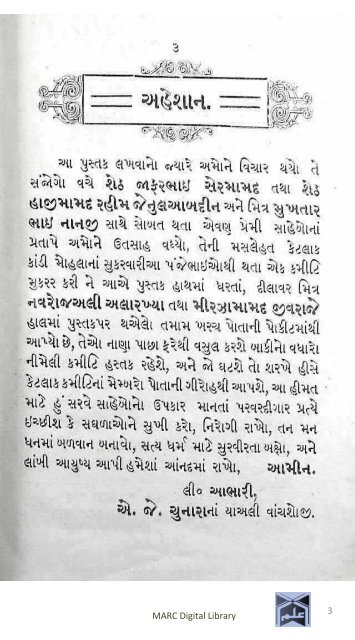 ૩
અહેશાન.
આ પુસ્તક લખવાનો જ્યારે અમોને વિચાર થયો તે
સંજોગો વચે શેઠ જાફરભાઇ સેરમામદ તથા શેઠ
હાજીમામદ રહીમ જેનુલઆબદીન અને મિત્ર મુખતાર
ભાઇ નાનજી સાથે સોબત થતા એવણુ પ્રેમી સાહેબોનાં
પ્રતાપે અમોને ઉતસાહ વધ્યો, તેની મસલેહત કેટલાક
કાંડી મોહલાનાં સુકરવારીઆ પંજેભાઇઓથી થતા એક કમીટિ
મુકરર કરી ને આએ પુસ્તક હાથમાં ધરતાં, દીલાવર મિત્ર
નવરોજઅલી અલારખ્યા તથા મીરઝામામદ જીવરાજે
હાલમાં પુસ્તકપર થએલો તમામ ખરચ પોતાની પોકીટમાંથી
આપ્યો છે, તેઓ નાણા પાછા ફરેથી વસુલ કરશે બાકીનો વધારો
નીમેલી કમીટિ હસ્તક રહેશે, અને જો ઘટશે તો શરખે હીસે
કેટલાક કમીટિનાં મેમ્બરો પોતાની ગીરોહથી આપશે, આ હીમત
માટે હું સરવે સાહેબોનો ઉપકાર માનતાં પરવરદીગાર પ્રત્યે
ઇચ્છીશ કે સઘળાઓને સુખી કરો, નિરોગી રાખો, તન મન
ધનમાં બળવાન બનાવો, સત્ય ધર્મ માટે સુરવીરતા બક્ષો, અને
લાંબી આયુષ્ય આપી હમેશાં આનંદમાં રાખો, આમીન.
લી૦ આભારી,
એ. જે. ચુનારાનાં યાઅલી વાંચશોજી.
MARC Digital Library
3